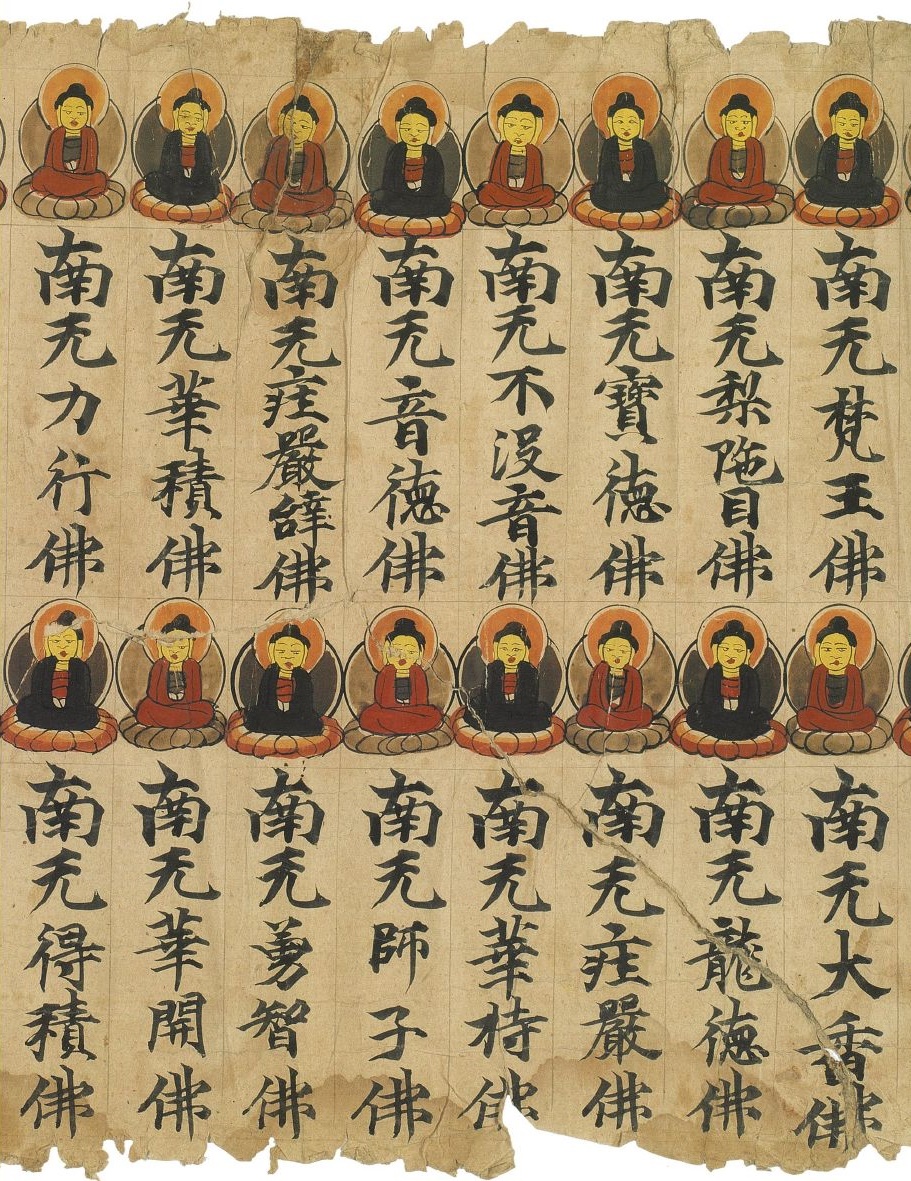 南无梵王佛
南无梨陁目佛
南无寶徳佛
南无不沒音佛
南无音徳佛
南无㽵嚴辝佛
南无華積佛
南无力行佛
南无大香佛
南无龍徳佛
南无㽵嚴佛
南无華持佛
南无師子佛
南无勇智佛
南无華開佛
南无得積佛